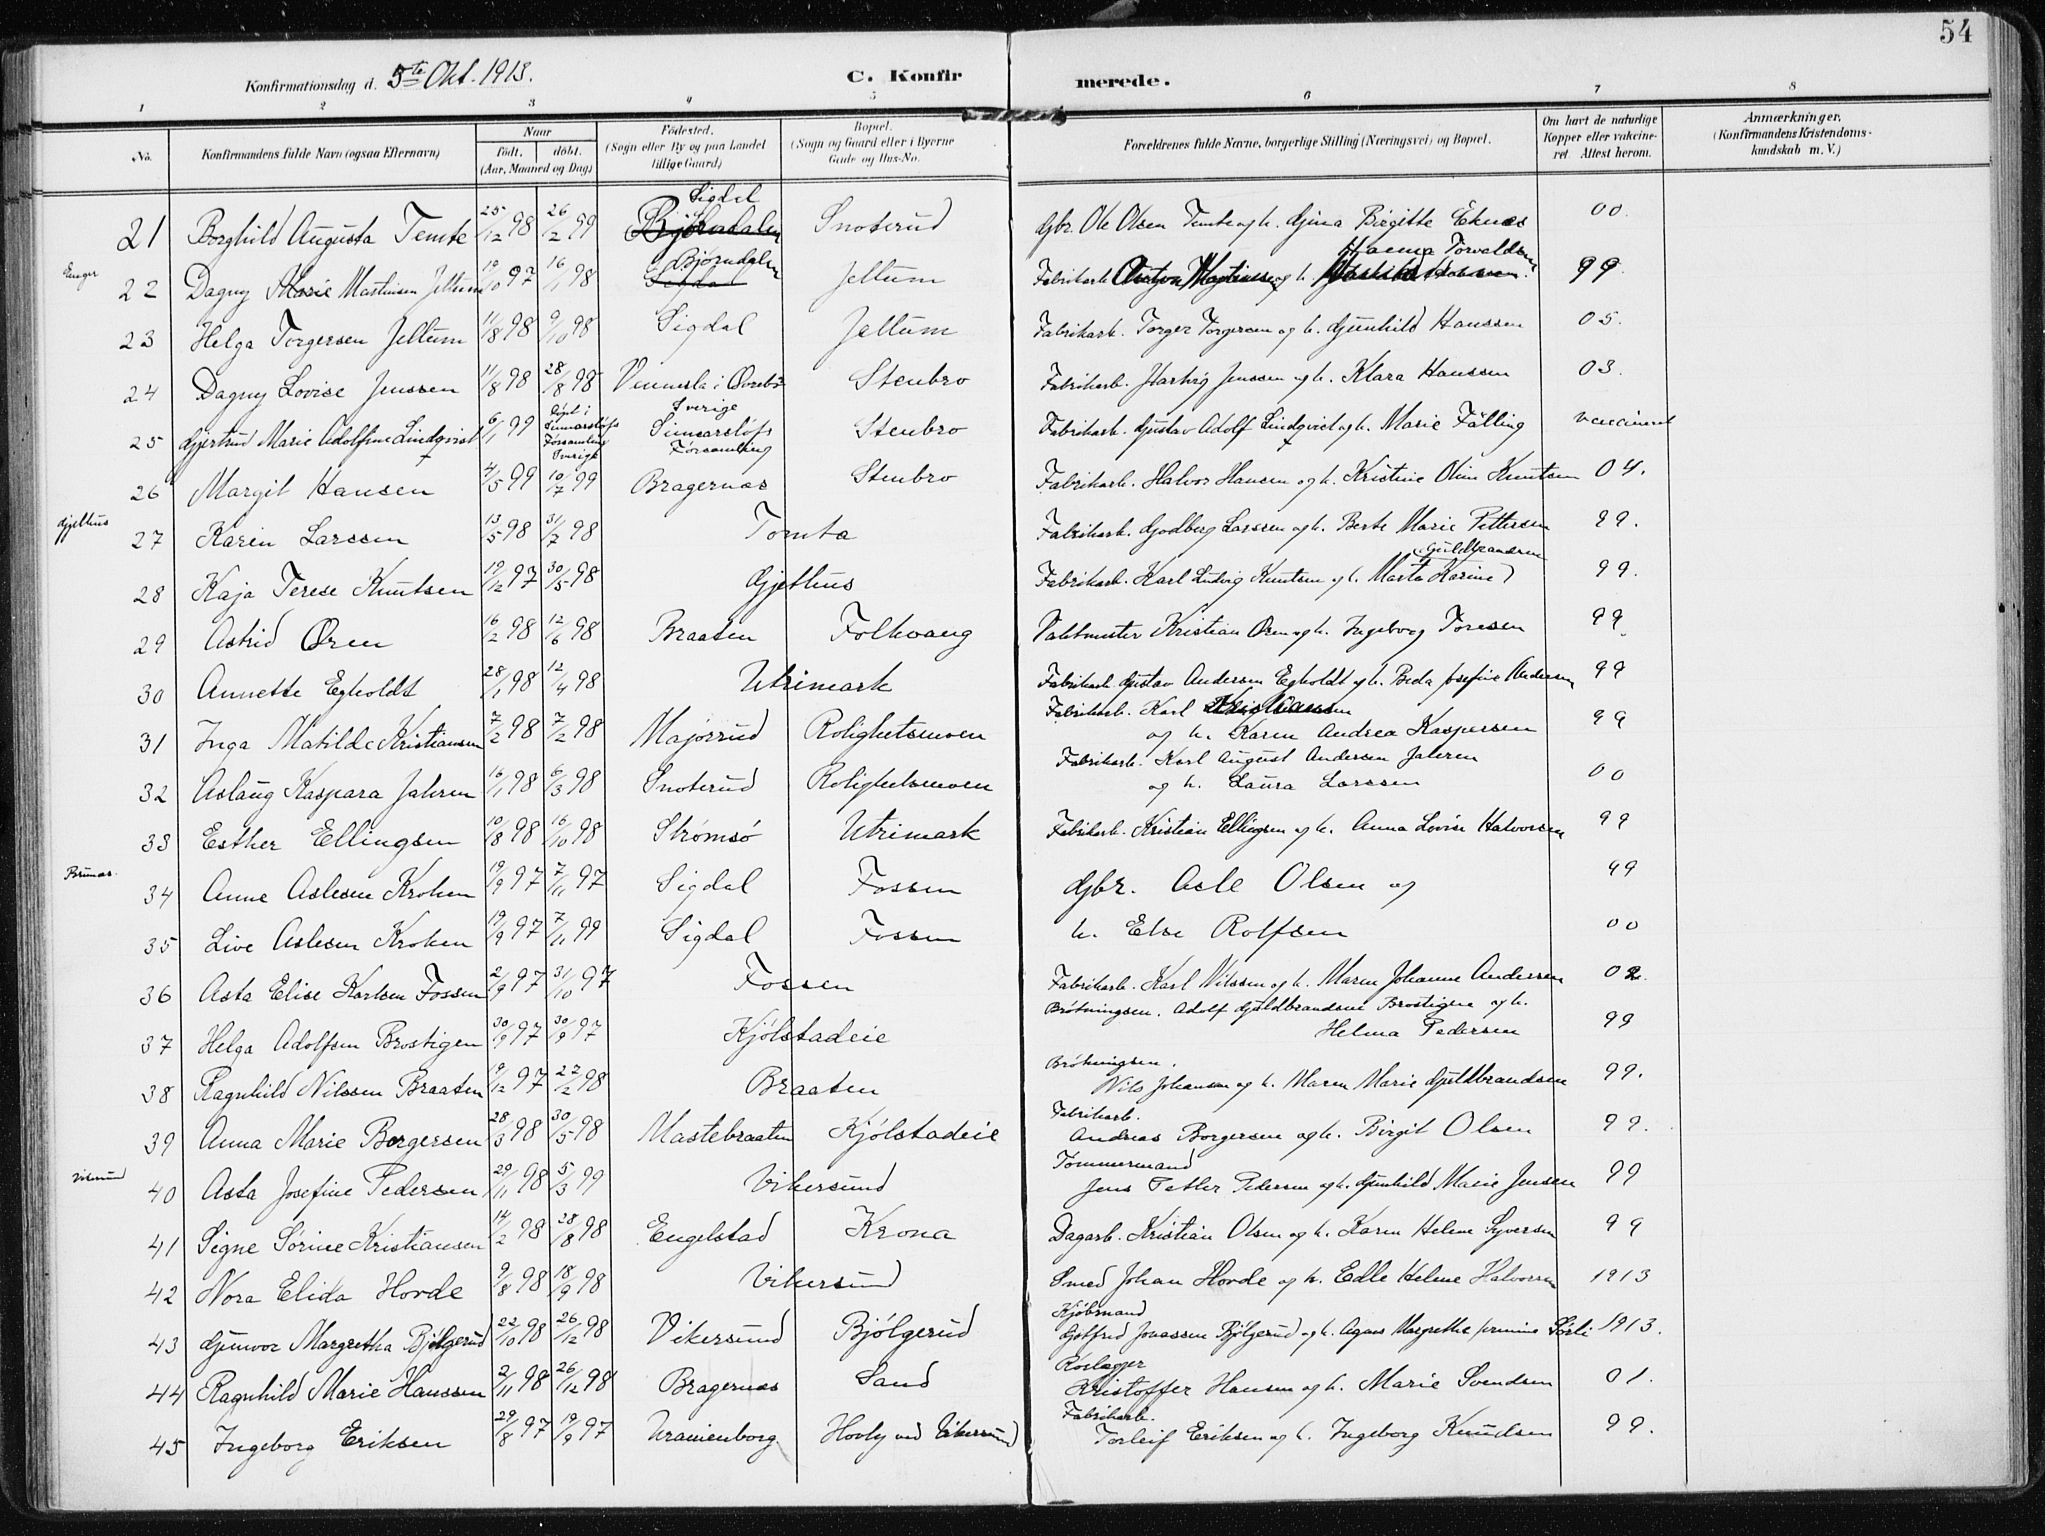 54
Konfirmationsdag d. 5te Okt. 1913.
C. Konfirmerede.
1 2 3 4 5 6 7 8
No.
Konfirmandens fulde Navn (ogsaa Efternavn)
Naar
født. døbt.
(Aar, Maaned og Dag)
Fødested.
(Sogn eller By og paa Landet
tillige Gaard)
Bopæl.
(Sogn og Gaard eller i Byerne
Gade og Hus-No.
Forældrenes fulde Navne, borgerlige Stilling (Næringsvei) og Bopæl.
Om havt de naturlige
Kopper eller vaccine-
ret Attest herom.
Anmærkninger.
(Konfirmandens Kristendoms-
kundskab m. V.)
Sigdal
21 Borghild Augusta Temte 25/12 98 26/12 99 Bjørndalen Snoterud Gbr. Ole Olsen Temte og h. Gjina Birgitte Eknes 00.
Bjørndalen Hanna Torvaldsen
22 Dagny Marie Martinsen Jellum 19/10 97 16/1 98 Sigdal Jellum Fabrikarb. Anton Martinsen og h. 99
23 Helga Torgersen Jellum 11/8 98 9/10 98 Sigdal Jellum Fabrikarb. Torger Torgersen og h. Gunhild Hanssen 05.
24 Dagny Lovise Jenssen 11/8 98 28/8 98 Vennesla i Øvrebø Stenbro Fabrikarb. Hartvig Jenssen og h. Klara Hanssen 03.
Døpt i Sverige
25 Gjertrud Marie Adolfine Lindqvist 6/1 99 Simarsløfs Forsamling Sverige Simarsløfs Forsamling Stenbro Fabrikarb. Gustav Adolf Lindqvist og h. Marie Fälling vaccineret
26 Margit Hansen 4/5 99 10/7 99 Bragernæs Stenbro Fabrikarb. Halvor Hansen og h. Kristine Oline Knutsen 04.
Gjethus
27 Karen Larssen 13/5 98 31/7 98 Tomta Fabrikarb. Godberg Larssen og h. Berte Marie Pettersen 99.
Guldbrandsen
28 Kaja Terese Knutsen 19/12 97 30/5 98 Gjethus Fabrikarb. Karl Ludvig Knutsen og h. Marta Karine 99.
29 Astrid Øren 16/2 98 12/6 98 Braaten Folkvang Valsmester Kristian Øren og h. Ingeborg Toresen 99.
30 Annette Egholdt 28/1 98 12/4 98 Utrimark Fabrikarb. Gustav Andersen Egholdt og h. Beda Josefine Andersen 99
Fabrikarb. Karl Kristiansen
31 Inga Matilde Kristiansen 7/2 98 7/2 98 Majorrud Rolighetsmoen og h. Karen Andrea Kaspersen 99
Fabrikarb. Karl August Andersen Jahren
32 Aslaug Kaspara Jahren 16/1 98 6/3 98 Snoterud Rolighetsmoen og h. Laura Larssen 00
33 Esther Ellingsen 10/8 98 16/10 98 Strømsø Utrimark Fabrikarb. Kristian Ellingsen og h. Anna Lovise Halvorsen 99
34 Anne Aslesen Kroken 19/9 97 7/11 97 Sigdal Fossen Gbr. Asle Olsen og 99
35 Live Aslesen Kroken 19/9 97 7/11 99 Sigdal Fossen h. Else Rolfsen 00
36 Asta Elise Karlsen Fossen 2/9 97 31/10 97 Fossen Fabrikarb. Karl Nilssen og h. Maren Johanne Andersen 02.
Brøtningsm. Adolf Guldbrandsen Brostigen og h.
37 Helga Adolfsen Brostigen 30/9 97 30/9 97 Kjølstadeie Helma Pedersen 99
Brøtningsm.
38 Ragnhild Nilssen Braaten 9/12 97 22/2 98 Braaten Nils Johansen og h. Maren Marie Guldbrandsen 99.
Fabrikarb.
39 Anna Marie Borgersen 28/3 98 30/5 98 Mastebraaten Kjølstadeie Andreas Borgersen og h. Birgit Olsen 99.
Tømmermand
40 Asta Josefine Pedersen 29/11 98 5/3 99 Vikersund Jens Petter Pedersen og h. Gunhild Marie Jensen 99
41 Signe Sørine Kristiansen 14/2 98 28/8 98 Engelstad Krona Dagarb. Kristian Olsen og h. Karen Helene Syversen 99
42 Nora Elida Horde 9/8 98 18/9 98 Vikersund Smed Johan Horde og h. Edle Helene Halvorsen 1913
Kjøbmand
43 Gunvor Margretha Bjølgerud 22/10 98 26/12 98 Vikersund Bjølgerud Gotfred Jonassen Bjølgerud og h. Agnes Margrethe Sørli 1913.
Rørlægger
44 Ragnhild Marie Hanssen 2/11 98 26/12 98 Bragernæs Sand Kristoffer Hansen og h. Marie Svendsen 01.
Fabrikarb.
45 Ingeborg Eriksen 29/8 97 19/9 97 Uranienborg Hovly ved Vikersund Torleif Eriksen og h. Ingeborg Knudsen 99.